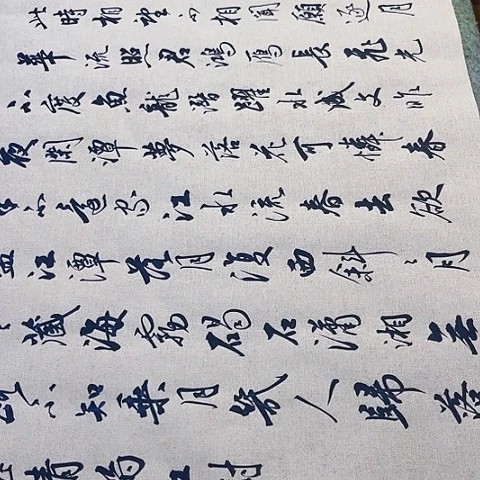 此時相望不相聞願逐月
華流照君鴻雁長飛光
不度魚龍潛躍水成文昨
夜閑潭夢落花可憐春
不還家江水流春去欲
江潭落月復西斜〻月
藏海霧碣石瀟湘無
路不知乘月幾人歸落
情滿江樹